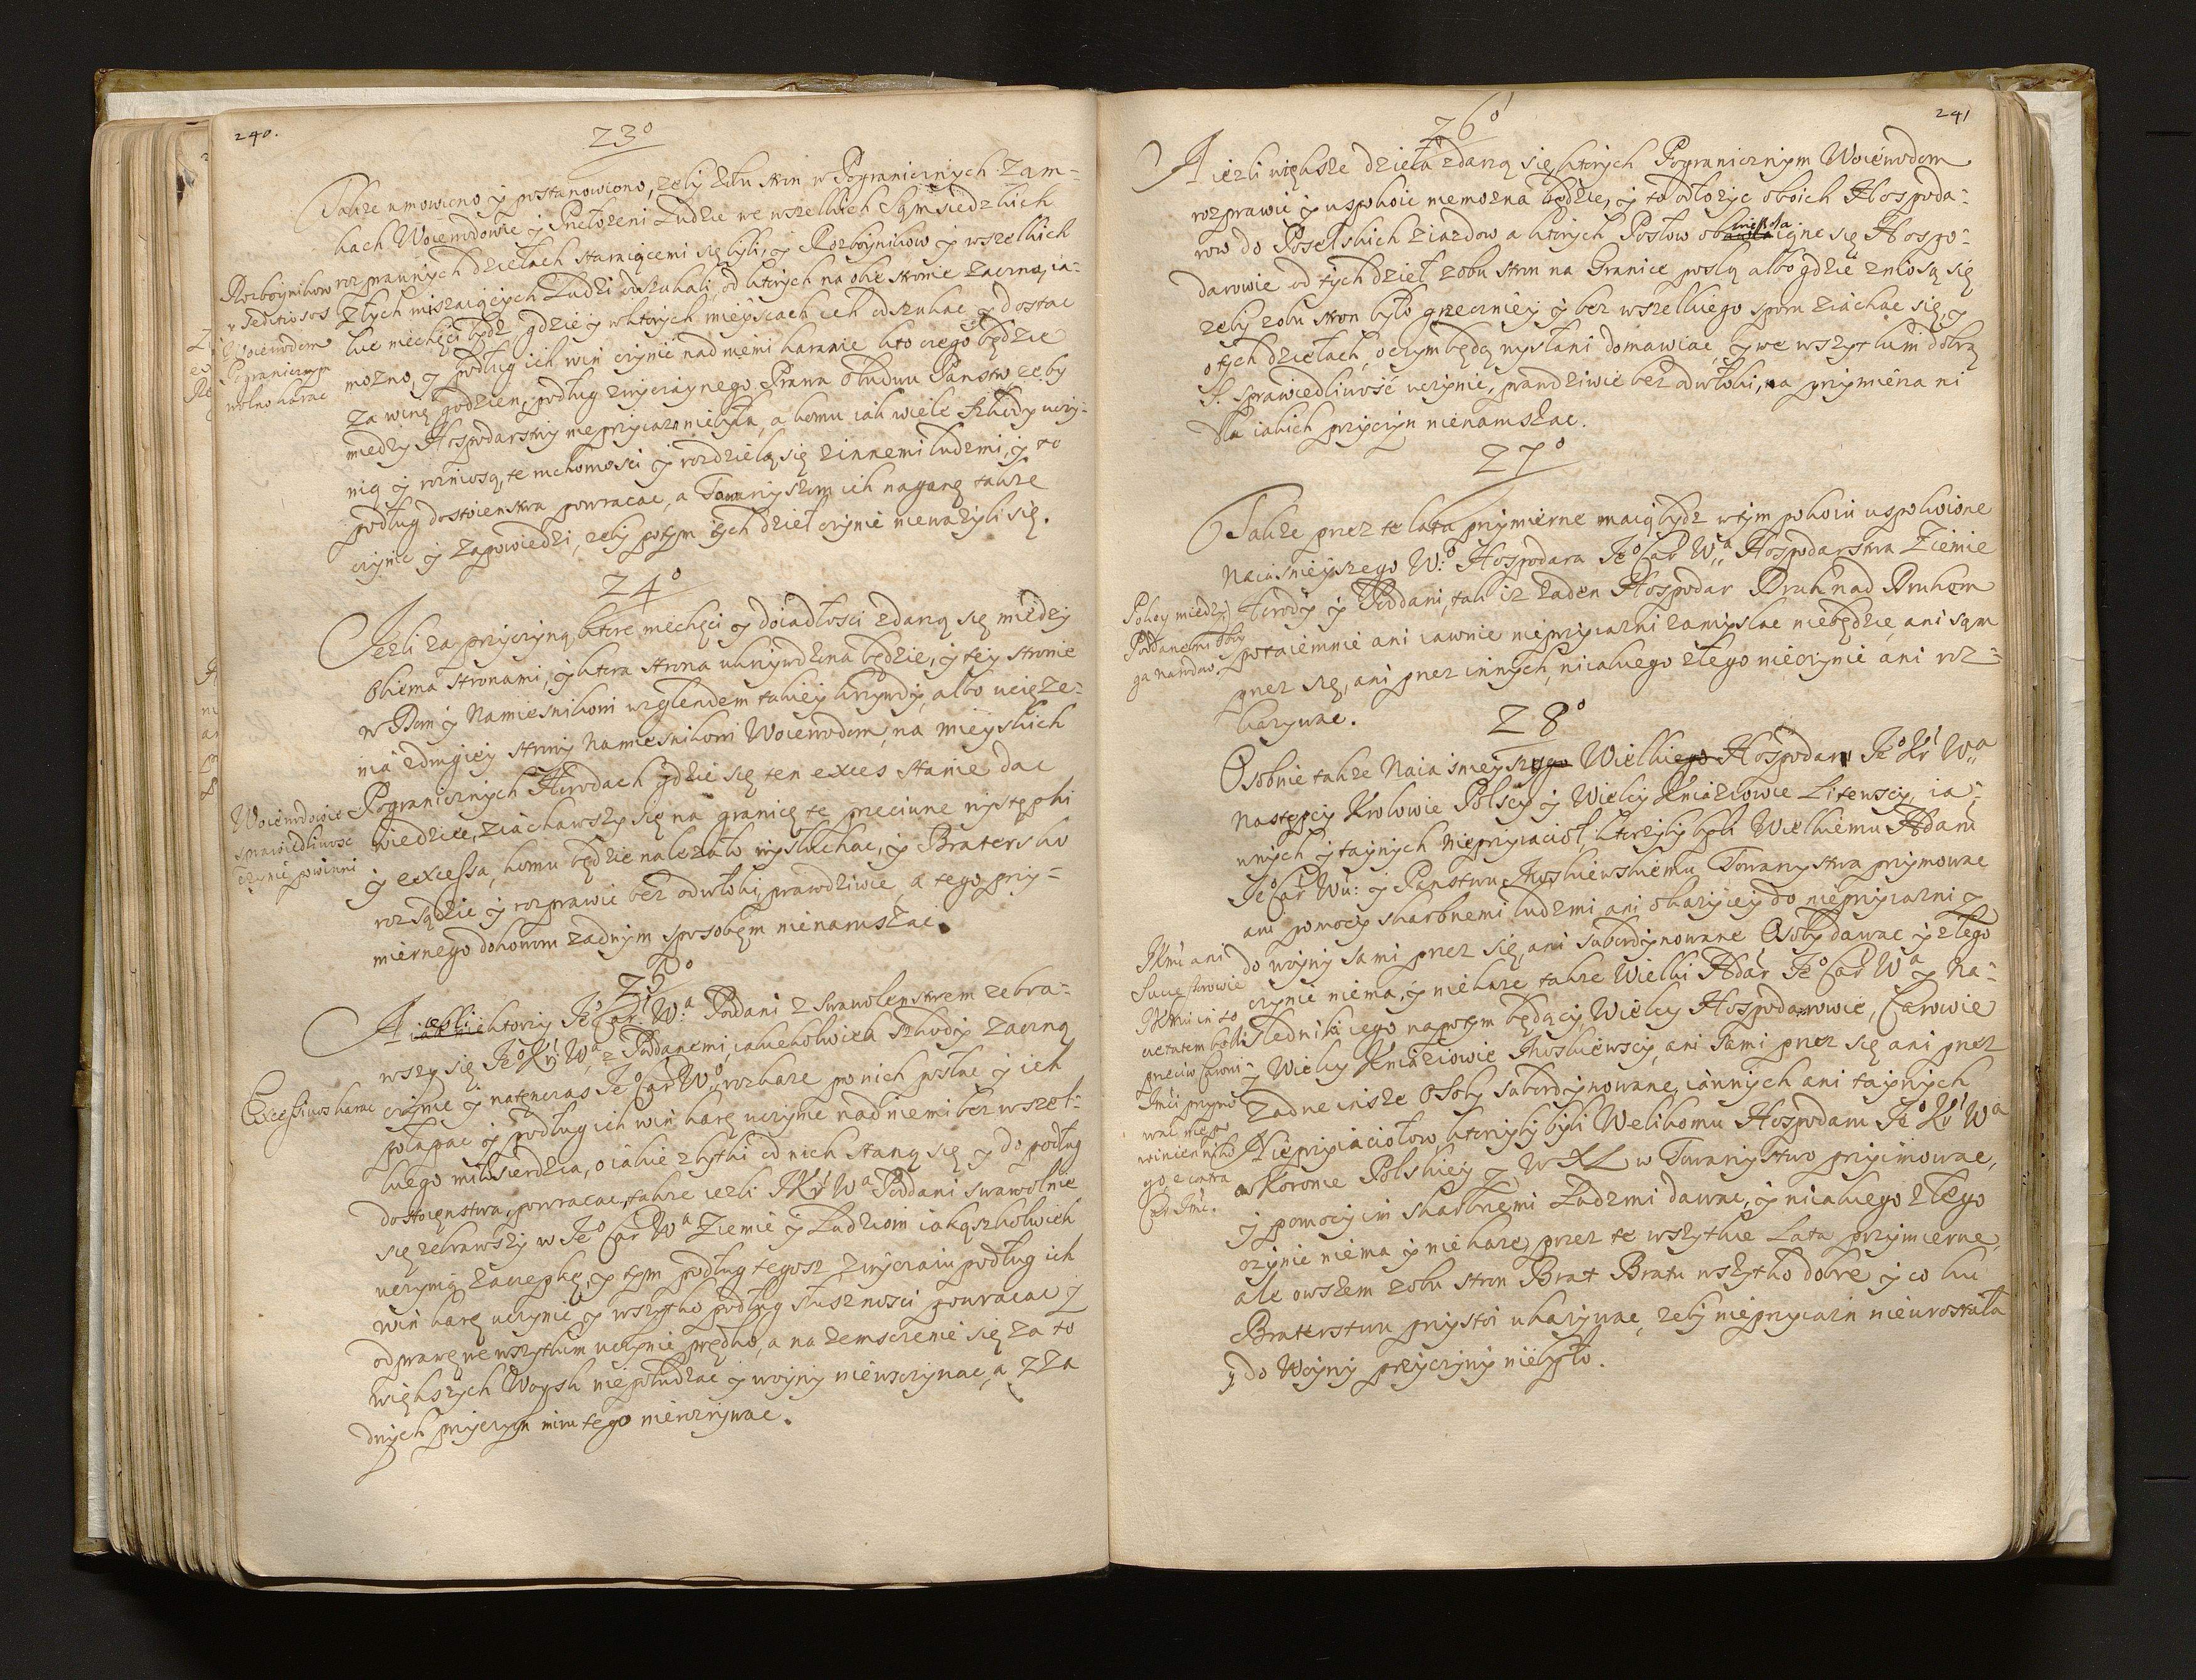 240.
23º
Także umowiono y postanowiono, zeby zobu stron w Pogranicznych Zam-
kach Woiewodowie y Przełozeni Ludzie we wszelkich Sąmsiedzkich
rozprawnych dziełach staraiącemi się byli, y Rozboynikow y wszelkich
złych miszaiących Ludzi odszukali, od ktorych na obie stronie zaczną, ia-
kie niechęci bydz gdzie y wktorych mieyscach ich odszukac y dostac
mozno, y podług ich win czynic nad niemi karanie kto czego będzie
za winę godzien, podług zwyczaynego Prawa obudwu Panstw zeby
miedzy Hospodarstwy nieprzyiazn niebyła, a komu iak wiele Szkody uczy-
nią y rozniosą, te ruchomosci y rozdzielą się zinnemi ludzmi, y to
podług dostoienstwa powracac, a Towarzyszom ich naganę także
czynic y zapowiedzi, zeby potym tych dzieł czynic niewazyli się.
Rozboynikow
y seditiosos
Woiewodom
Pogranicznym
wolno karac
24º
Jezli za przyczyną ktore niechęci y dociadłosci zdarzą się miedzy
Obiema stronami, y ktora strona ukrzywdzona będzie, y tey stronie
w Dom y Namiesnikowi względem takiey krzywdy, albo uciąze-
nia zdrugiey strony Namiesnikowi Woiewodom, na mieyskich
Pogranicznych Horodach gdzie się ten exces stanie dac
wiedziec, ziachawszy się na granicę te przeciwne występki
y excessa, komu będzie nalezało wysłuchac, y Bratersko
rozsądzic y rozprawic bez odwłoki prawdziwie, a tego przy-
miernego dokonom zadnym sposobem nienaruszac.
Woiewodowie
sprawiedliwosc
czynic powinni
25º
A iezli ktorzy Jeº Car: W:ª Poddani z Swawolenstwem zebra-
wszy się Jeº Kr: W,ª z Poddanemi, iakieżkolwiek szkody zaczną
czynic y natenczas Jeº Car Wº, rozkaze po nich posłac y ich
połapac y podług ich win karę uczynic nad niemi bez wszel-
kiego miłosierdzia, o iakie zbytki od nich staną się y do podług
dostoięnstwa, powracac, także iezli J Kr Wª Poddani swawolnie
się zebrawszy w Jeº Car Wª Ziemie y Ludziom iakąszkolwiek
uczynią zaczepkę, y tym podług tegosz zwyczaiu podług ich
win karę uczynic y wszytko podług słusznosci powracac y
odprawę we wszytkim uczynic prędko, a na zemszczenie się za to
większych Woysk niepobudzac y woyny niewszczynac, a zza
dnych przyczyn mimo tego niewzrywac.
Excessiwos karac
241
26º
A iezli większe dzieła zdarzą się, ktorych Pogranicznym Woiewodom
rozprawic y uspokoic niemozna będzie, y to odłozyc oboich Hospoda-
row do Poselskich ziazdow a ktorych Posłow Hospo-
darowie od tych dzieł zobu stron na Granice poslą albo gdzie zniosą się
zeby zobu stron było grzeczniey y bez wszelkiego sporu ziachac się, y
o tych dziełach, oczym będą wysłani domawiac, y we wszytkim dobrą
S. Sprawiedliwość uczynic, prawdziwie bez odwłoki, a przymierza ni
dla iakich przyczyn nienaruszac.
27º
Także przez te lata przymierne maią bydz wtym pokoiu uspokoione
Naiasnieyszego W:º Hospodara Jeº Car W,ª Hospodarstwa Ziemie
Horody y Poddani, tak iz zaden Hospodar Druh nad Druhom
potaiemnie ani iawnie nieprzyiazni zamyslac niebędzie, ani sąm
przez się, ani przez innych, nikakiego złego nieczynic ani roz-
kazywac.
Pokoy miedzy
Poddanemi oboy
ga narodow
28º
Osobnie także Naiasnieyszego Wielkiego Hospodara Jeº Kr Wª
Następcy Krolowie Polscy y Wielcy Kniaziowie Litewscy, ia-
wnych y taynych nieprzyiacioł, ktorzyby byli Wielkiemu Hdarü
Jeº Car Wu: y Panstwu Moskiewskiemu Towarzystwa przymowac
ani pomocy skarbnemi ludzmi, ani okazyiey do nieprzyiazni y
do woyny sami przez się, ani subordynowane Osoby dawac y złego
czynic niema, y niekaze także Wielki Hdar Jeº Car Wª y Na-
slednik iego napotym będący, Wielcy Hospodarowie, Carowie
y Wielcy Kniaziowie Moskiewscy, ani sami przez się ani przez
zadne insze Osoby subordynowane, iawnych ani taynych
Nieprzyiaciołow, ktorzyby byli Welikomu Hospodaru Jeº Kr Wª
w Koronie Polskiey y W X L w Towarzystwo przyimowac,
y pomocy im skarbnemi Ludzmi dawac, y nikakiego złego
czynic niema y niekaze, przez te wszytkie Lata przymierne,
ale owszem zobu stron Brat Bratu wszytko dobre y co ku
Braterstwu przystoi ukazywac, zeby nieprzyiazn nieurostała
y do Woyny przyczyny niebyło.
JKMc ani
Successorowie
JKMci in so
cietatem belli
przeciw Carowi
Jmci przymo
wac niepo
winien ni ko
go e contra
Car Jmc.